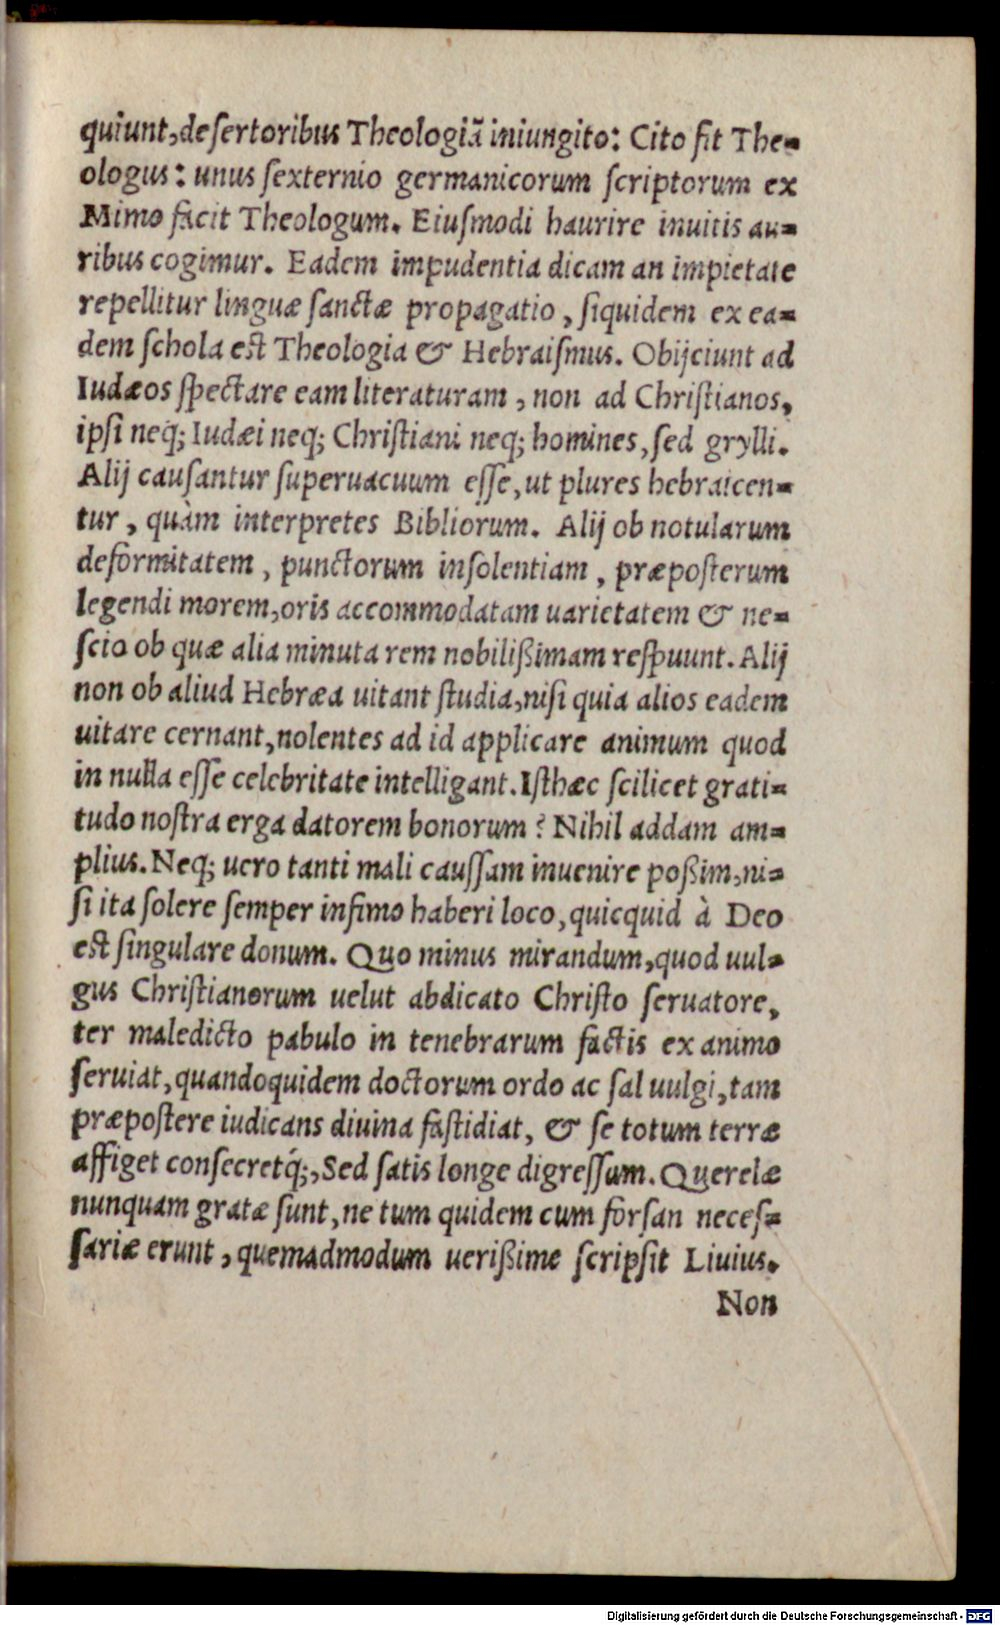 quiunt, desertoribus Theologiã iniungito: Cito fit The-
ologus: unus sexternio germanicorum scriptorum ex
Mimo facit Theologum. Eiusmodi haurire inuitis au-
ribus cogimur. Eadem impudentia dicam an impietate
repellitur linguæ sanctæ propagatio, siquidem ex ea-
dem schola est Theologia & Hebraismus. Obijciunt ad
Iudæos spectare eam literaturam, non ad Christianos,
ipsi neq; Iudæi neq; Christiani neq; homines, sed grylli.
Alij causantur superuacuum esse, ut plures hebraicen-
tur, quàm interpretes Bibliorum. Alij ob notularum
deformitatem, punctorum insolentiam, præposterum
legendi morem, oris accommodatam uarietatem & ne-
scio ob quæ alia minuta rem nobilißimam respuunt. Alij
non ob aliud Hebræa uitant studia, nisi quia alios eadem
uitare cernant, nolentes ad id applicare animum quod
in nulla esse celebritate intelligant. Isthæc scilicet grati-
tudo nostra erga datorem bonorum? Nihil addam am-
plius. Neq; uero tanti mali caussam inuenire poßim, ni-
si ita solere semper infimo haberi loco, quicquid à Deo
est singulare donum. Quo minus mirandum, quod uul-
gus Christianorum uelut abdicato Christo seruatore,
ter maledicto pabulo in tenebrarum factis ex animo
seruiat, quandoquidem doctorum ordo ac sal uulgi, tam
præpostere iudicans diuina fastidiat, & se totum terræ
affiget consecretq́;, Sed satis longe digressum. Querelæ
nunquam gratæ sunt, ne tum quidem cum forsan neces-
sariæ erunt, quemadmodum uerißime scripsit Liuius.
Non
Digitalisierung gefördert durch die Deutsche Forschungsgemeinschaft - DFG